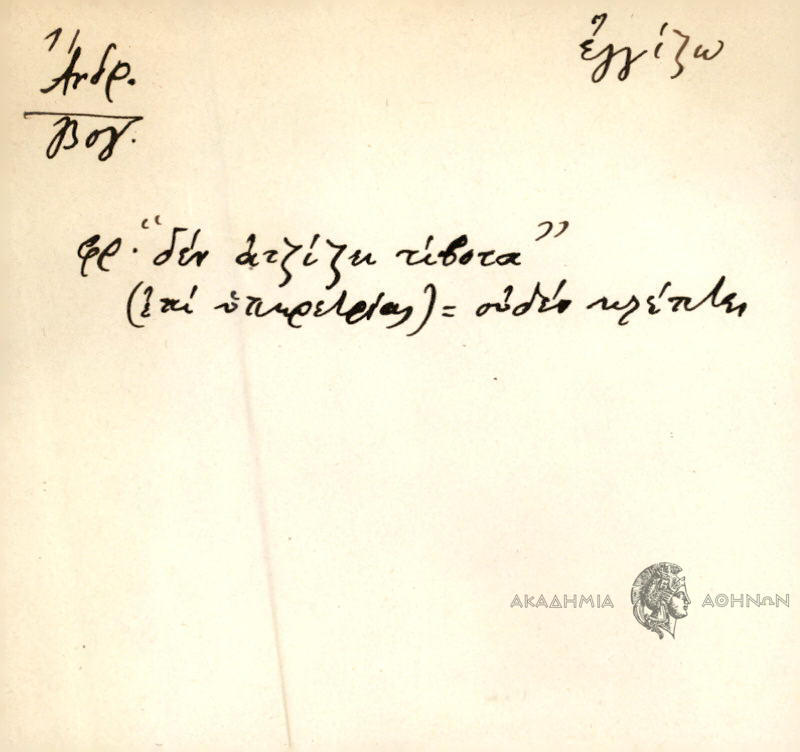 Ἄνδρ.
Βογ.
ἐγγίζω
φρ. "δέν ἀτζίζει τίβοτα"
(ἐπί ὑπηρετρίας) = οὐδέν κλέπτει
ΑΚΑΔΗΜΙΑ ΑΘΗΝΩΝ